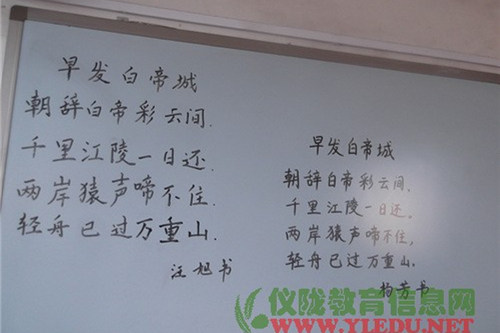 早发白帝城
朝辞白帝彩云间.
千里江陵一日还.
两岸猿声啼不住.
轻舟已过万重山.
汪旭书
早发白帝城
朝辞白帝彩云间,
千里江陵一日还。
两岸猿声啼不住,
轻舟已过万重山.
芳书
仪陇教育信息网
WWW.YLEDU.NET